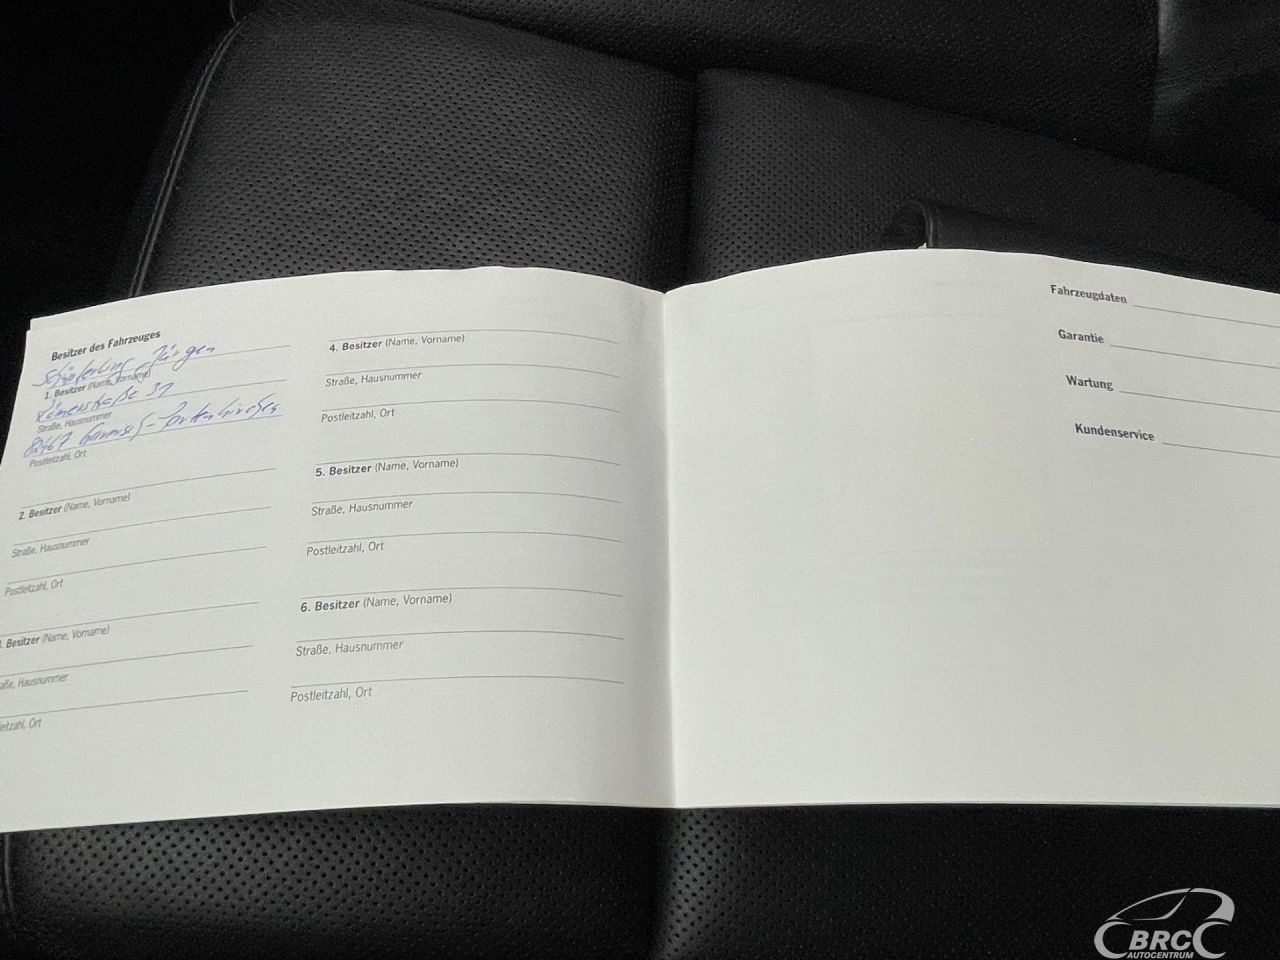 Besitzer des Fahrzeuges
Jürgen
1. Besitzer (Name, Vorname)
31
Straße, Hausnummer
82467 Garmisch-Partenkirchen
Postleitzahl, Ort
2. Besitzer (Name, Vorname)
Straße, Hausnummer
Postleitzahl, Ort
. Besitzer (Name, Vorname)
aße, Hausnummer
leitzahl, Ort
4. Besitzer (Name, Vorname)
Straße, Hausnummer
Postleitzahl, Ort
5. Besitzer (Name, Vorname)
Straße, Hausnummer
Postleitzahl, Ort
6. Besitzer (Name, Vorname)
Straße, Hausnummer
Postleitzahl, Ort
Fahrzeugdaten
Garantie
Wartung
Kundenservice
BRC
AUTOCENTRUM